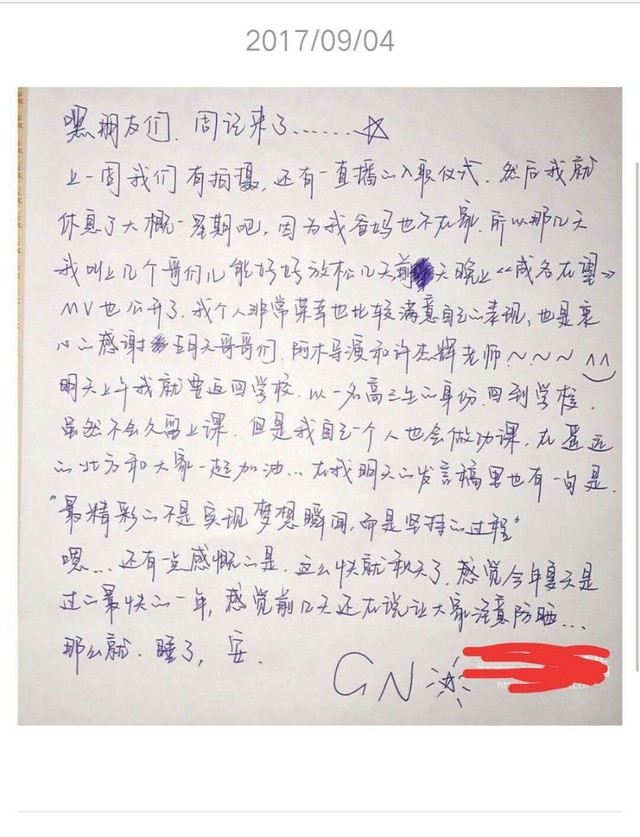 2017/09/04
嘿朋友们、周记来了......☆
上一周我们有拍摄,还有一直播的入职仪式.然后我就
休息了大概一星期吧,因为我爸妈也不在家.所以那几天
我叫上几个哥们儿能好好放松几天前天晚上《成名在望》
MV也公开了.我个人非常荣幸也比较满意自己的表现,也是衷
心的感谢五月天哥哥们、阿木导演和许杰辉老师~~~ ^^
明天上午我就要返回学校.以一名高三生的身份.回到学校.
虽然不会久留上课.但是我自己一个人也会做功课.在遥远
的北方和大家一起加油...在我明天的发言稿里也有一句是.
"最精彩的不是实现梦想瞬间,而是坚持的过程"
嗯...还有一点感慨的是.这么快就秋天了.感觉今年夏天是
过的最快的一年,感觉前几天还在说让大家注意防晒...
那么就.睡了,安.
GN ☆